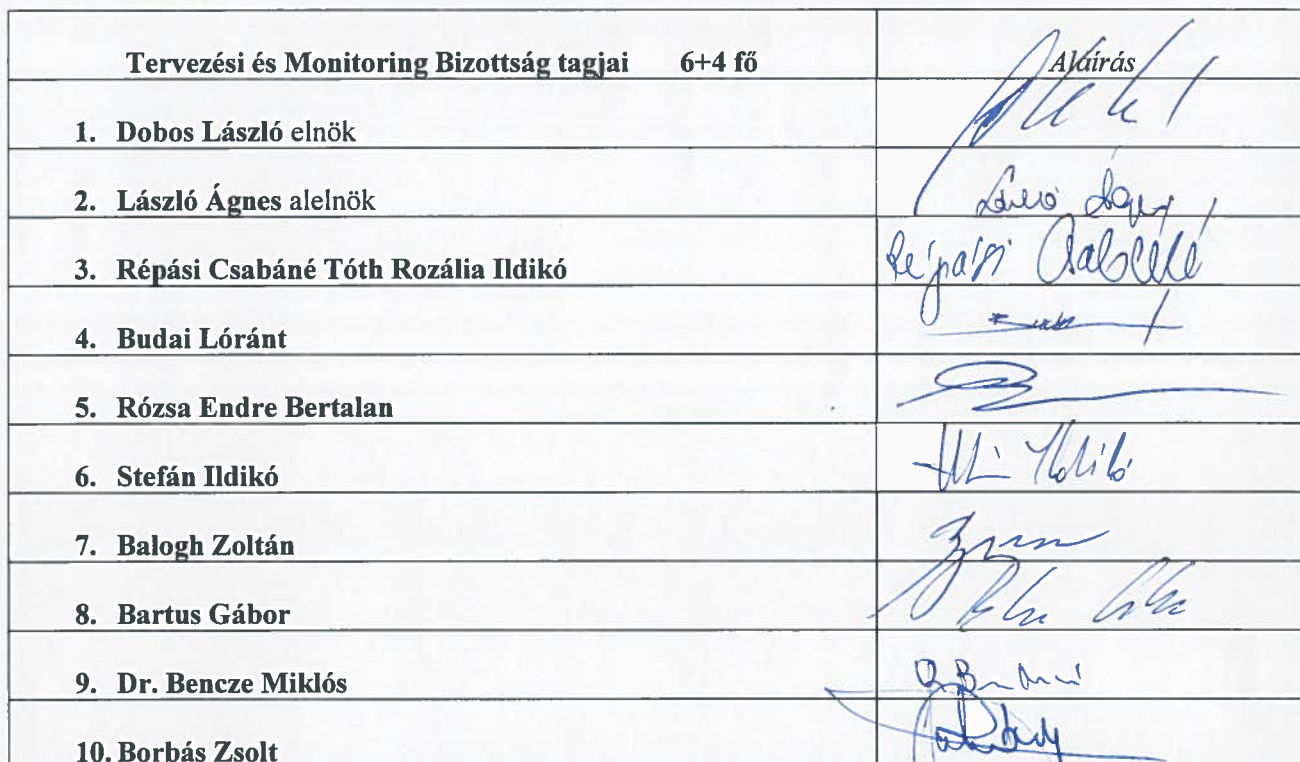 Tervezési és Monitoring Bizottság tagjai 6+4 fő Aláírás
1. Dobos László elnök
2. László Ágnes alelnök
3. Répási Csabáné Tóth Rozália Ildikó Répási Csabáné
4. Budai Lóránt
5. Rózsa Endre Bertalan
6. Stefán Ildikó Ildikó
7. Balogh Zoltán
8. Bartus Gábor
9. Dr. Bencze Miklós
10. Borbás Zsolt